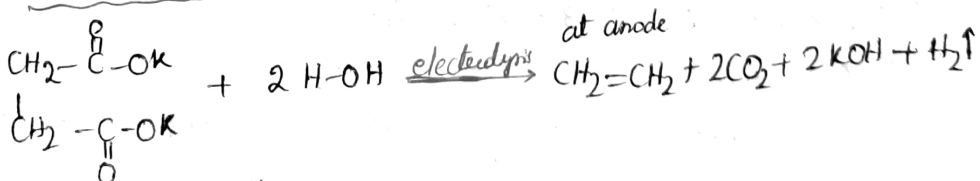 at anode
O
||
CH₂-C-OK
|
CH₂-C-OK
||
O
+ 2 H-OH electrolysis → CH₂=CH₂ + 2CO₂ + 2KOH + H₂↑